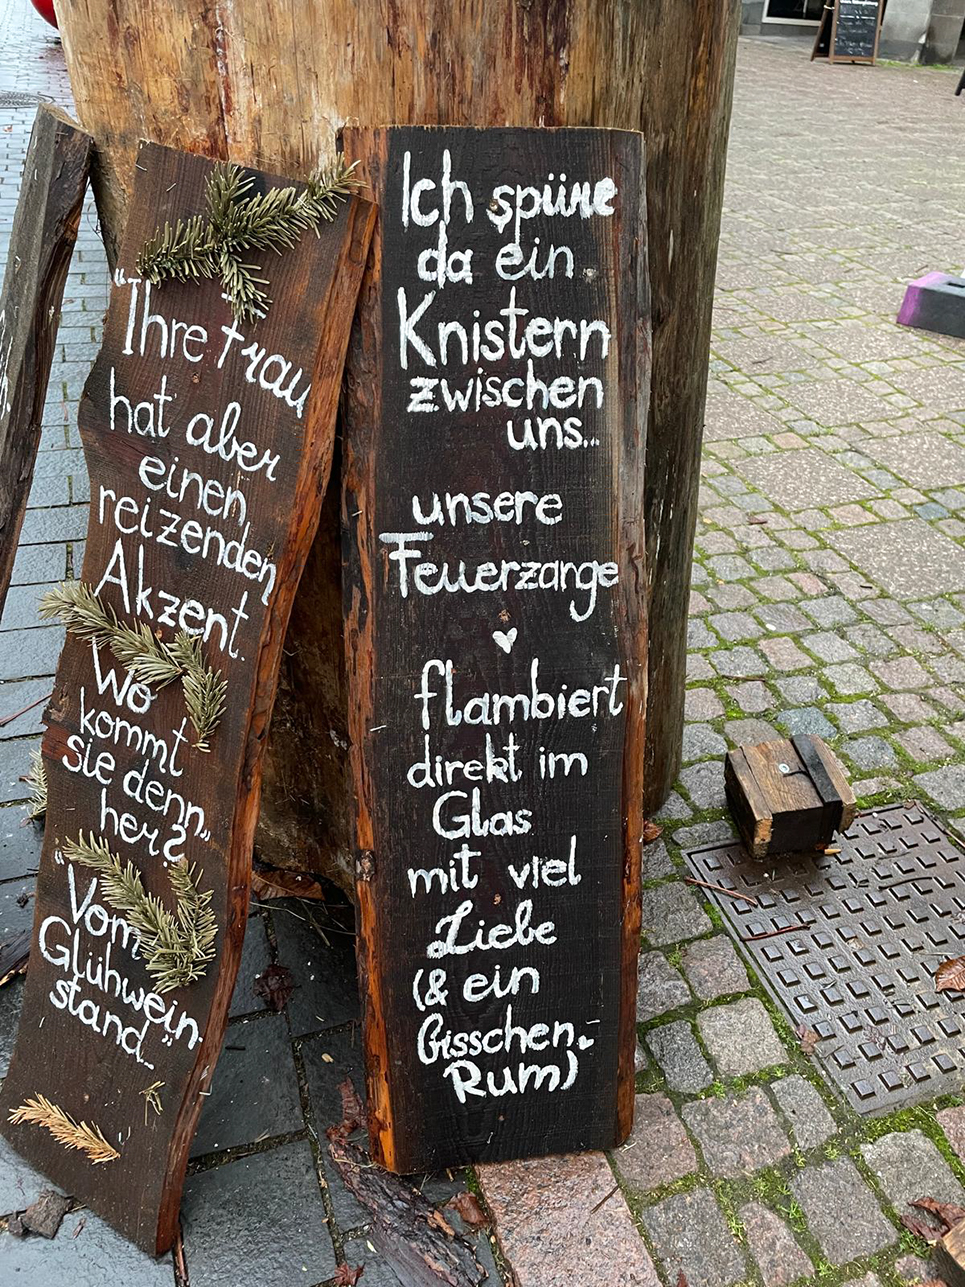 "Ihre Frau
hat aber
einen
reizenden
Akzent.
Wo
kommt
sie denn
her?"
"Vom
Glühwein-
stand..."
Ich spüre
da ein
Knistern
zwischen
uns...
unsere
Feuerzange
♥
flambiert
direkt im
Glas
mit viel
Liebe
(& ein
Bisschen
Rum)